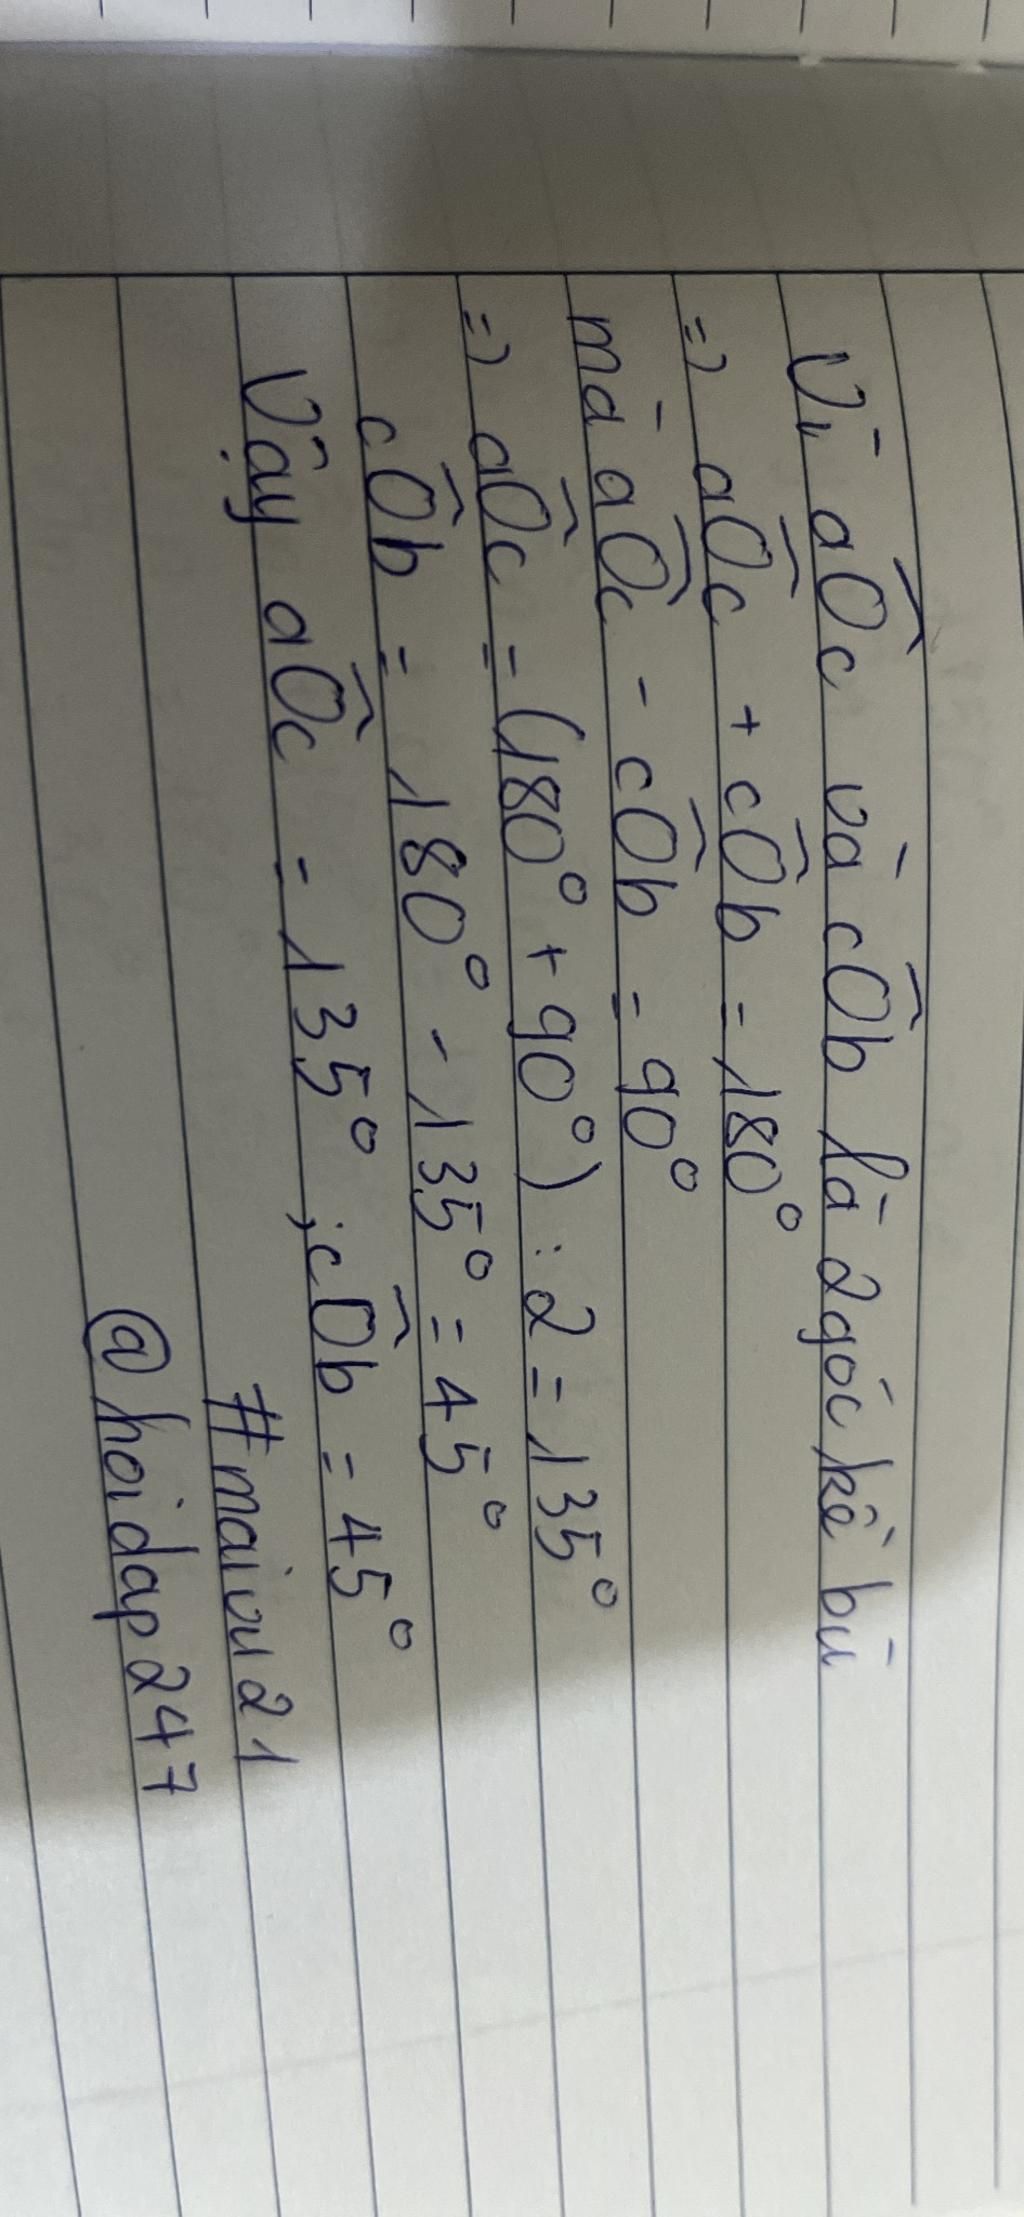 Vì aÔc và cÔb là 2 góc kề bù
=> aÔc + cÔb = 180°
mà aÔc - cÔb = 90°
=> aÔc = (180° + 90°) : 2 = 135°
cÔb = 180° - 135° = 45°
Vậy aÔc = 135° ; cÔb = 45°
#maivu21
@hoidap247